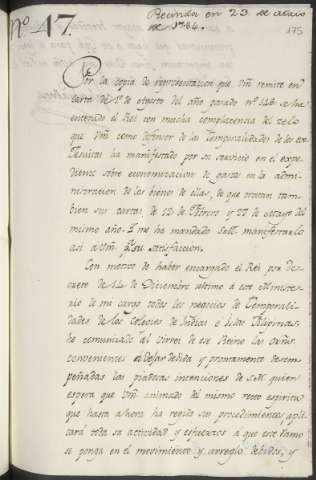 Recivida en 23 de
de 1784.
Nº 17
175
Por la copia de representacion que Vm remite en
carta de 1º de Agosto del año pasado nº 146 se ha
enterado el Rei con mucha complacencia del zelo
que Vm como defensor de las Temporalidades de los ex
Jesuitas ha manifestado por su servicio en el expe
diente sobre economizacion de gastos en la admi-
nistracion de los bienes de ellas, de que tratan tam
bien sus cartas de 12 de Febrero y 27 de
mismo año. I me ha mandado S.M. manifestarlo
asi a Vm pª su satisfaccion.
Con motivo de haber encargado el Rei por De-
creto de 14 de Diciembre ultimo à este Ministe-
rio de mi cargo todos los negocios de Temporali-
dades de los Colegios de Indias è Islas Filipinas
he comunicado al Virrei de ese Reino las òrdns.
convenientes a dejar devida y prontamente desem-
peñadas las piadosas intenciones de S.M. quien
espera que Vm animado del mismo recto espiritu
que hasta ahora ha regido sus procedimientos apli
cará toda su actividad y esfuerzos a que este Ramo
se ponga en el movimiento y arreglo debidos, y